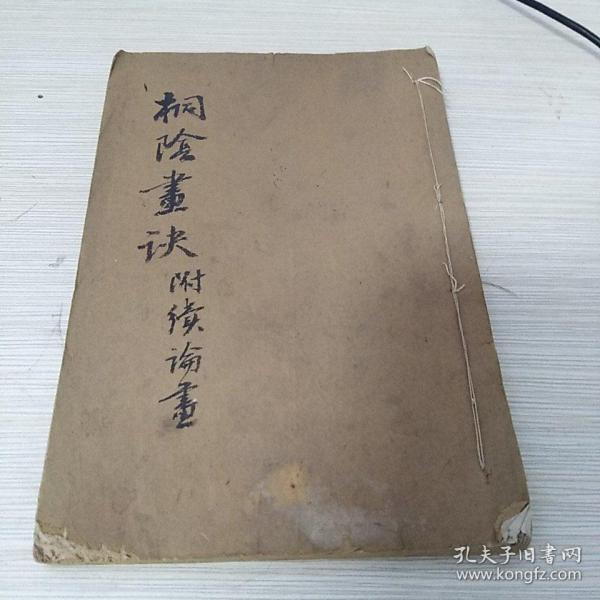 桐陰畫訣附續論畫
孔夫子旧书网
www.kongfz.com